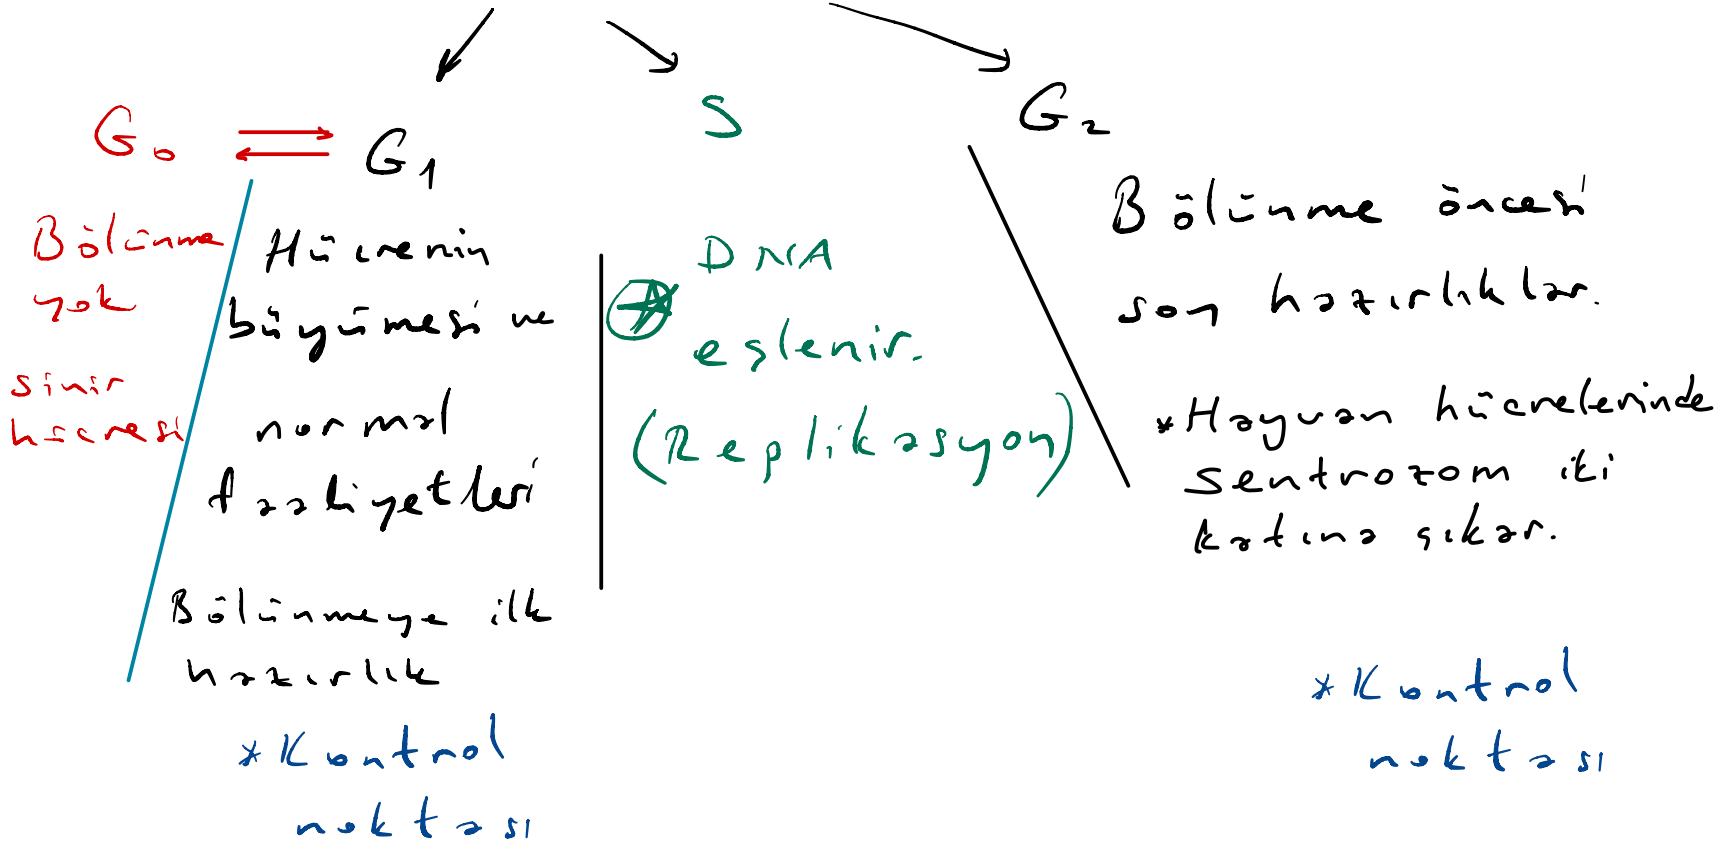 G₀ ⇌ G₁
Bölünme
yok
sinir
hücresi
Hücrenin
büyümesi ve
normal
faaliyetleri
Bölünmeye ilk
hazırlık
*Kontrol
noktası
S
DNA
eşlenir.
(Replikasyon)
G₂
Bölünme öncesi
son hazırlıklar.
*Hayvan hücrelerinde
sentrozom iki
katına çıkar.
*Kontrol
noktası